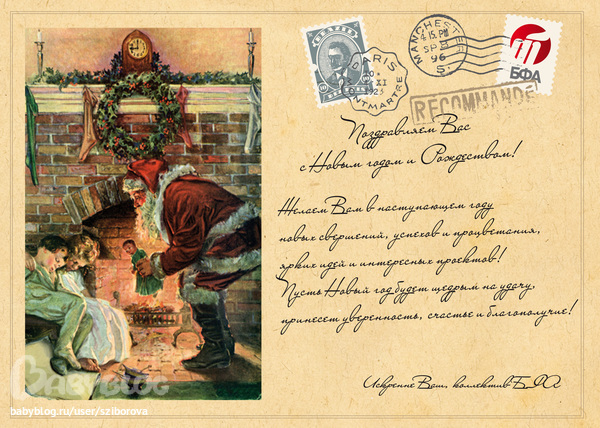 MANCHESTER
4.15.PM
SP
96
5.
PARIS
XI
1923
MONTMARTRE
БФА
RECOMMANDE
Поздравляем Вас
с Новым годом и Рождеством!
Желаем Вам в наступающем году
новых свершений, успехов и процветания,
ярких идей и интересных проектов!
Пусть Новый год будет щедрым на удачу,
принесет уверенность, счастье и благополучие!
Искренне Ваш, коллектив БФА
BABYBLOG
babyblog.ru/user/sziborova